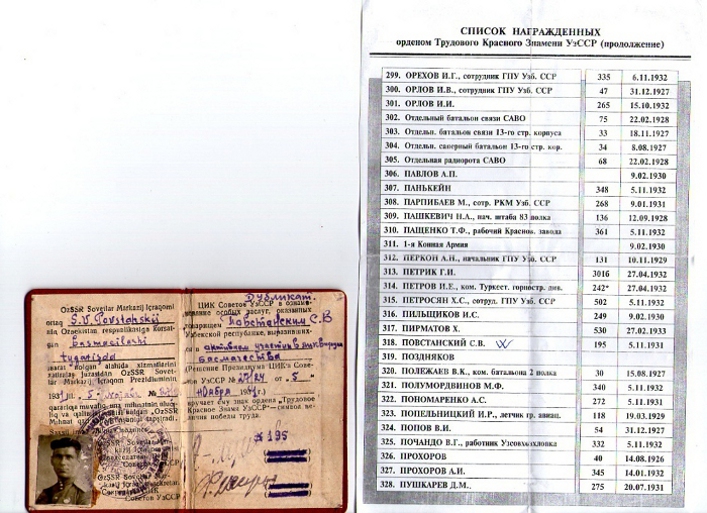 OzSSR Sovetlar Markazij Içraqomi
S.V. Povstanskij
Basmacilarni
tugatişda
OzSSR Sovetlar
Дубликат.
ЦИК Советов УзССР в ознаме-
нование особых заслуг, оказанных
товарищем Повстанским С.В
Узбекской республике, выразивших-
ся в активном участии в ликвидации
басмачества
(Решение Президиума ЦИК'а Сове-
тов УзССР № 27/24 от „5"
Ноября 1931 г.)
вручает ему знак ордена „Трудовое
Красное Знамя УзССР"—символ ве-
личия победы труда.
№ 195
Советов УзССР
СПИСОК НАГРАЖДЕННЫХ
орденом Трудового Красного Знамени УзССР (продолжение)
299. ОРЕХОВ И.Г., сотрудник ГПУ Узб. ССР 335 6.11.1932
300. ОРЛОВ И.В., сотрудник ГПУ Узб. ССР 47 31.12.1927
301. ОРЛОВ И.И. 265 15.10.1932
302. Отдельный батальон связи САВО 75 22.02.1928
303. Отдельн. батальон связи 13-го стр. корпуса 33 18.11.1927
304. Отдельн. саперный батальон 13-го стр. кор. 34 8.08.1927
305. Отдельная радиорота САВО 68 22.02.1928
306. ПАВЛОВ А.П. 9.02.1930
307. ПАНЬКЕЙН 348 5.11.1932
308. ПАРПИБАЕВ М., сотр. РКМ Узб. ССР 268 9.01.1931
309. ПАШКЕВИЧ Н.А., нач. штаба 83 полка 136 12.09.1928
310. ПАЩЕНКО Т.Ф., рабочий Краснов. завода 361 5.11.1932
311. 1-я Конная Армия 9.02.1930
312. ПЕРКОН А.Н., начальник ГПУ Узб. ССР 131 10.11.1929
313. ПЕТРИК Г.И. 3016 27.04.1932
314. ПЕТРОВ И.Е., ком. Туркест. горностр. див. 242* 27.04.1932
315. ПЕТРОСЯН Х.С., сотруд. ГПУ Узб. ССР 502 5.11.1932
316. ПИЛЬЩИКОВ И.С. 249 9.02.1930
317. ПИРМАТОВ Х. 530 27.02.1933
318. ПОВСТАНСКИЙ С.В. 195 5.11.1931
319. ПОЗДНЯКОВ
320. ПОЛЕЖАЕВ В.К., ком. батальона 2 полка 30 15.08.1927
321. ПОЛУМОРДВИНОВ М.Ф. 340 5.11.1932
322. ПОНОМАРЕНКО А.С. 272 5.11.1931
323. ПОПЕЛЬНИЦКИЙ И.Р., летчик гр. авиац. 118 19.03.1929
324. ПОПОВ В.И. 54 31.12.1927
325. ПОЧАНДО В.Г., работник Узсовхозхлопка 332 5.11.1932
326. ПРОХОРОВ 40 14.08.1926
327. ПРОХОРОВ А.И. 345 14.01.1932
328. ПУШКАРЕВ Д.М., 275 20.07.1931